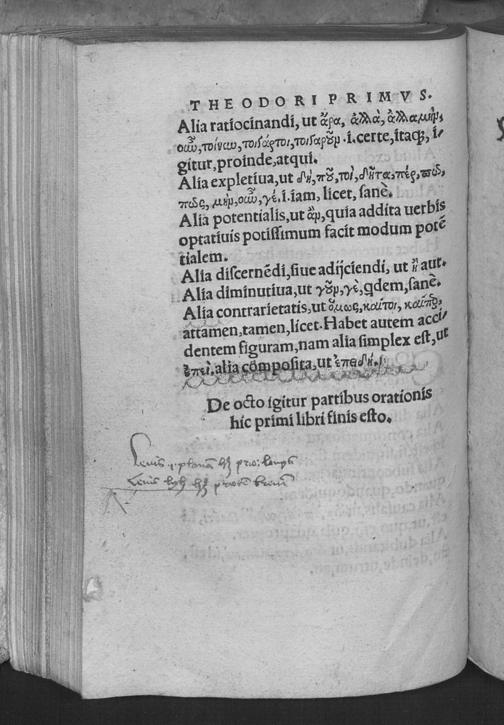 THEODORI PRIMVS.
Alia ratiocinandi, ut ἄρα, ἀλλὰ, ἀλλαμὴν,
οὖν, τοίνυν, τοιγάρτοι, τοιγαροῦν .i. certe, itaqꝫ, i/
gitur, proinde, atqui.
Alia expletiua, ut δὴ, ποὺ, τοὶ, δῆτα, πὲρ, πὼ,
πὼς, μὴν, οὖν, γὲ, i. iam, licet, sanè.
Alia potentialis, ut ἂν, quia addita uerbis
optatiuis potissimum facit modum potē
tialem.
Alia discernēdi, siue adijciendi, ut ἢ aut.
Alia diminutiua, ut γοῦν, γὲ, qdem, sanè.
Alia contrarietatis, ut ὅμως, καίτοι, καίπερ,
attamen, tamen, licet. Habet autem acci/
dentem figuram, nam alia simplex est, ut
ἐπεὶ, alia cōposita, ut ἐπειδὴ.
De octo igitur partibus orationis
hic primi libri finis esto.
Leuis
Leuis